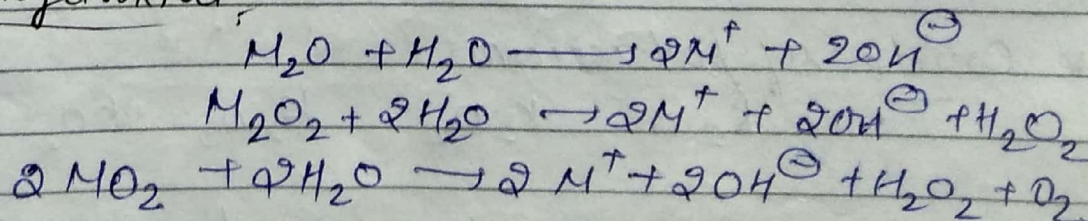 M₂O + H₂O ⟶ 2M⁺ + 2OH⊖
M₂O₂ + 2H₂O → 2M⁺ + 2OH⊖ + H₂O₂
2MO₂ + 2H₂O → 2M⁺ + 2OH⊖ + H₂O₂ + O₂